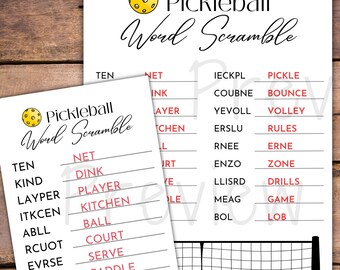 Pickleball
Word Scramble
TEN NET IECKPL PICKLE
COUBNE BOUNCE
YEVOLL VOLLEY
ERSLU RULES
RNEE ERNE
ENZO ZONE
LLISRD DRILLS
MEAG GAME
BOL LOB
Pickleball
Word Scramble
TEN NET
KIND DINK
LAYPER PLAYER
ITKCEN KITCHEN
ABLL BALL
RCUOT COURT
EVRSE SERVE
Preview
Preview